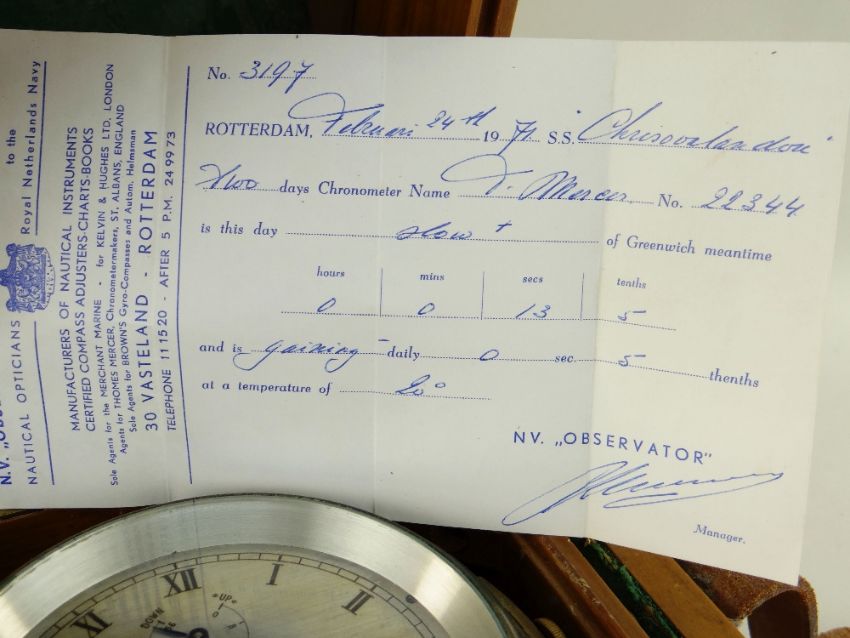 N.V. „OBS
NAUTICAL OPTICIANS to the Royal Netherlands Navy
MANUFACTURERS OF NAUTICAL INSTRUMENTS
CERTIFIED COMPASS ADJUSTERS-CHARTS-BOOKS
Sole Agents for the MERCHANT MARINE - for KELVIN & HUGHES LTD. LONDON
Agents for THOMES MERCER, Chronometermakers, ST. ALBANS, ENGLAND
Sole Agents for BROWN'S Gyro-Compasses and Autom. Helmsman
30 VASTELAND - ROTTERDAM
TELEPHONE 11 15 20 - AFTER 5 P.M. 24 99 73
No. 3197
ROTTERDAM, Februari 24th 1971 S.S. "Chrisovalandou"
Two days Chronometer Name T. Mercer No. 22344
is this day slow + of Greenwich meantime
hours mins secs tenths
0 0 13 5
and is gaining - daily 0 sec. 5 thenths
at a temperature of 20°
NV. „OBSERVATOR"
Manager.
XII I II
DOWN "UP"